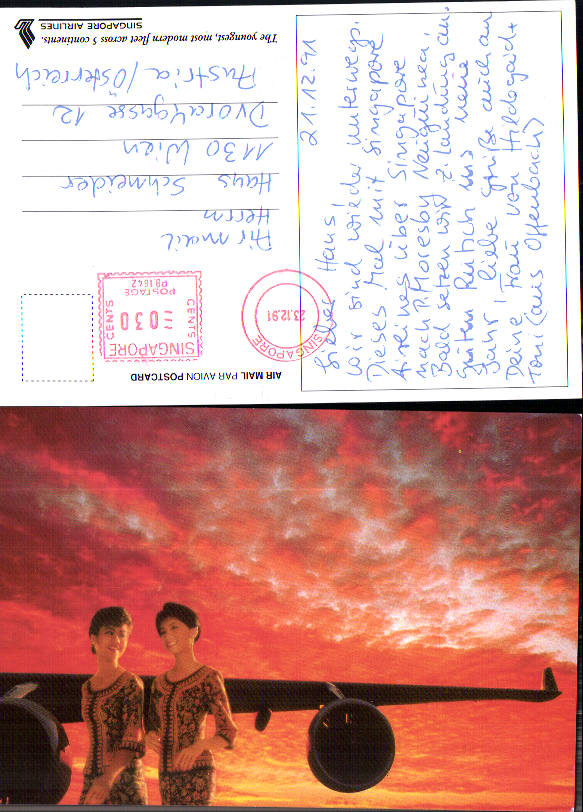 AIR MAIL PAR AVION POSTCARD
SINGAPORE
CENTS
030
CENTS
POSTAGE
PB1642
23.12.91
SINGAPORE
Air mail
Herrn
Hans Schneider
1130 Wien
Dvorakgasse 12
Austria/Österreich
The youngest, most modern fleet across 5 continents.
SINGAPORE AIRLINES
21.12.91
Lieber Hans!
Wir sind wieder unterwegs.
Dieses Mal mit Singapore
Airlines über Singapore
nach P. Moresby Neuguinea.
Bald setzen wir z Landung an.
Guten Rutsch ins neue
Jahr! liebe Grüße auch an
Deine Frau von Hildegard+
Toni (aus Offenbach)